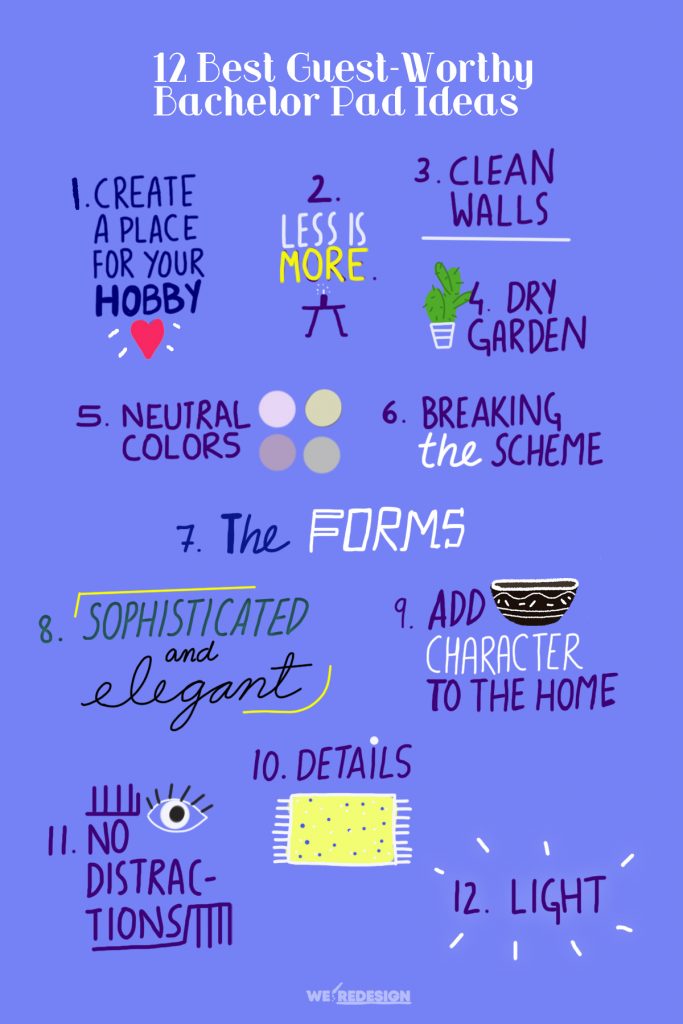 12 Best Guest-Worthy
Bachelor Pad Ideas
1. CREATE
A PLACE
FOR YOUR
HOBBY
2.
LESS IS
MORE.
3. CLEAN
WALLS
4. DRY
GARDEN
5. NEUTRAL
COLORS
6. BREAKING
the SCHEME
7. The FORMS
8. SOPHISTICATED
and
elegant
9. ADD
CHARACTER
TO THE HOME
10. DETAILS
11. NO
DISTRAC-
TIONS
12. LIGHT
WE REDESIGN